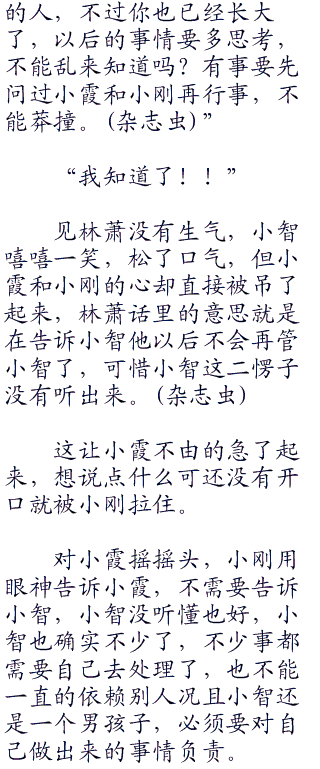 的人，不过你也已经长大
了，以后的事情要多思考，
不能乱来知道吗？有事要先
问过小霞和小刚再行事，不
能莽撞。(杂志虫)”
“我知道了！！”
见林萧没有生气，小智
嘻嘻一笑，松了口气，但小
霞和小刚的心却直接被吊了
起来，林萧话里的意思就是
在告诉小智他以后不会再管
小智了，可惜小智这二愣子
没有听出来。(杂志虫)
这让小霞不由的急了起
来，想说点什么可还没有开
口就被小刚拉住。
对小霞摇摇头，小刚用
眼神告诉小霞，不需要告诉
小智，小智没听懂也好，小
智也确实不少了，不少事都
需要自己去处理了，也不能
一直的依赖别人况且小智还
是一个男孩子，必须要对自
己做出来的事情负责。